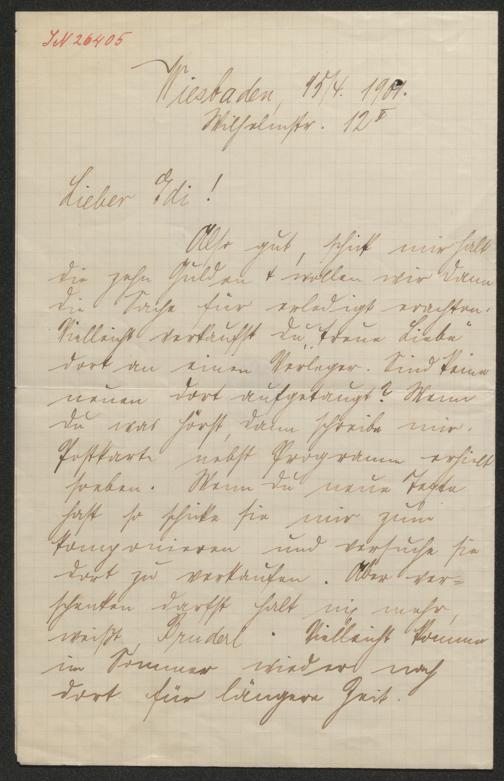 IN 26405
Wiesbaden, 15/4. 1901.
Wilhelmstr. 12 II
Lieber Edi!
Also gut, schick mir halt
die zehn Gulden & wollen wir dann
die Sache für erledigt erachten.
Vielleicht verkaufst du "treue Liebe"
dort an einen Verleger. Sind keine
neuen dort aufgetaucht? Wenn
du was hörst, dann schreibe mir.
Postkarte nebst Programm erhielt
soeben. Wenn du neue Texte
hast so schicke sie mir zum
komponieren und versuche sie
dort zu verkaufen. Aber ver=
schenken darfst halt nix mehr,
weißt, Bruderl. Vielleicht komme
im Sommer wieder nach
dort für längere Zeit.